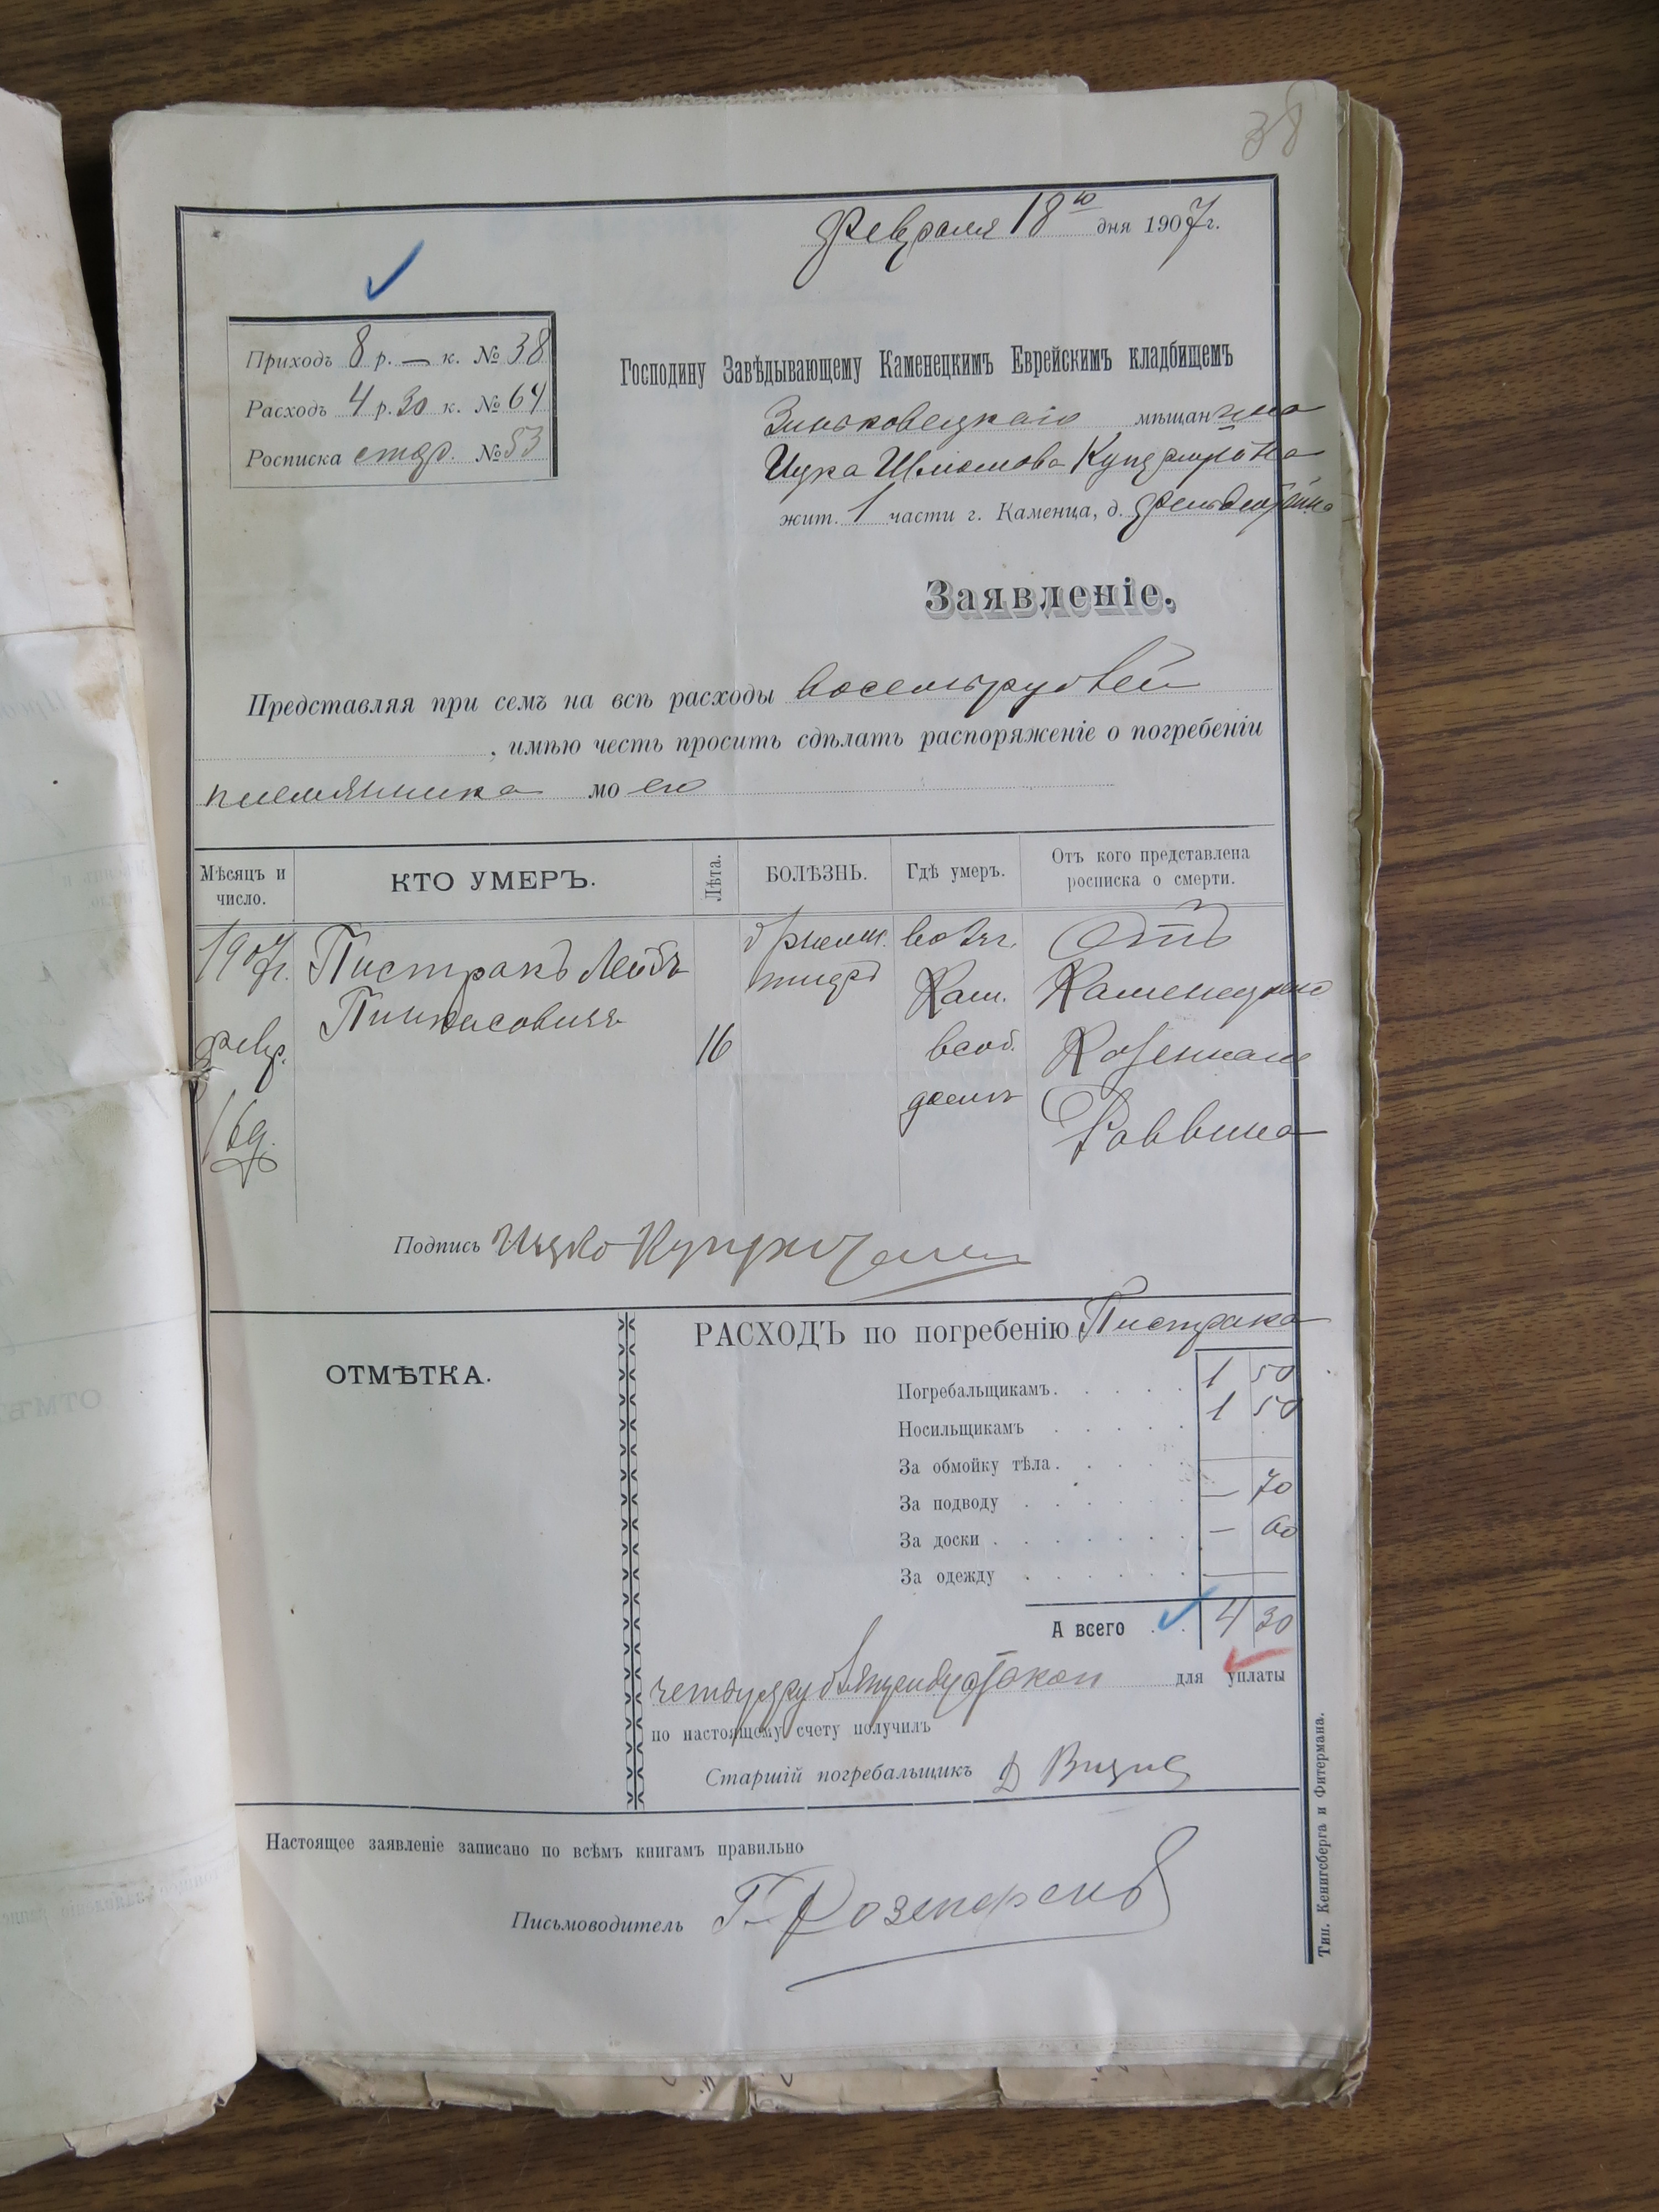 38
Февраля 18го дня 1907 г.
Приходъ 8 р. — к. № 38
Расходъ 4 р. 30 к. № 64
Росписка стар. № 53
Господину Завѣдывающему Каменецкимъ Еврейскимъ кладбищемъ
Зиньковецкаго мѣщанина
Ицка Шлиомова
жит. 1 части г. Каменца, д.
Заявленіе.
Представляя при семъ на всѣ расходы восемь рублей
, имѣю честь просить сдѣлать распоряженіе о погребеніи
племянника моего
Мѣсяцъ и число.
КТО УМЕРЪ.
Лѣта.
БОЛѢЗНЬ.
Гдѣ умеръ.
Отъ кого представлена росписка о смерти.
1907 г. Пистракъ Лейбъ брюшн. Отъ
Пинхасовичъ тифъ Кам. Каменецкаго
февр. 16 в соб. Казеннаго
16 д. домѣ Раввина
Подпись Ицко
ОТМѢТКА.
РАСХОДЪ по погребенію Пистрака
Погребальщикамъ. 1 50
Носильщикамъ 1 50
За обмойку тѣла.
За подводу — 70
За доски — 60
За одежду —
А всего 4 30
четыре руб. тридцать коп для уплаты
по настоящему счету получилъ
Старшій погребальщикъ Д
Настоящее заявленіе записано по всѣмъ книгамъ правильно
Письмоводитель Г.
Тип. Кенигсберга и Фитермана.